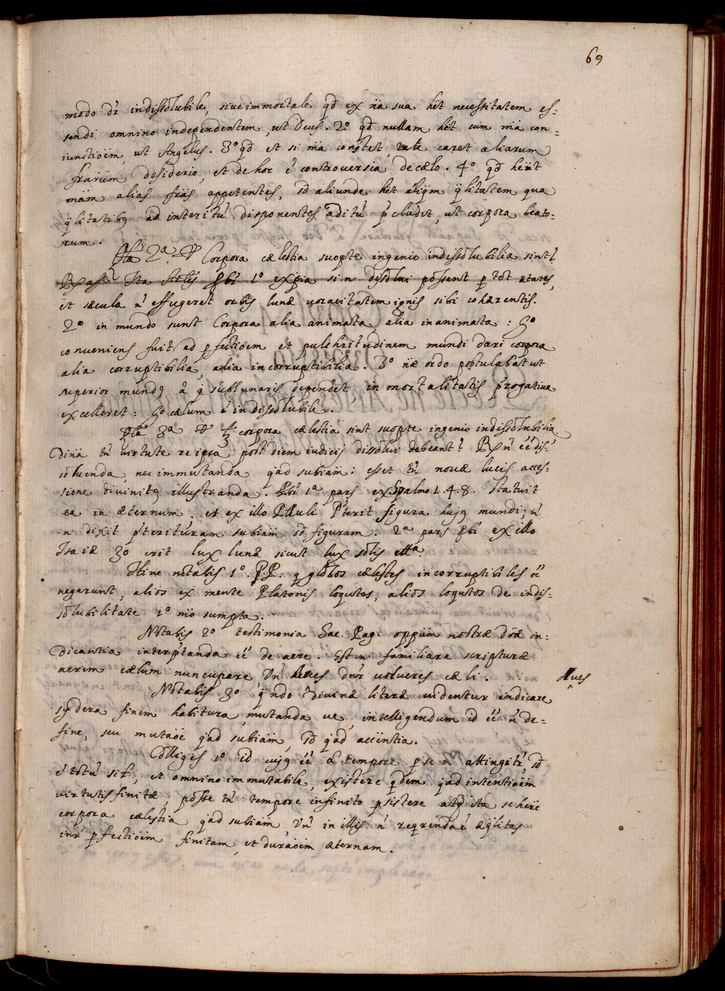 69
modo dr̄ indissolubile, sive immortale qd̄ ex nā sua hēt necessitatem es-
sendi omnino independentem, ut Deus. 2º qd̄ nullam hēt cum mā con-
iunctiōm, ut Angelus. 3º qd̄ et si mā constet, tale caret aliarum
frārum desiderio, et de hoc ē controversia de cælo. 4º qd̄ hēnt
mām alias frās appetentes, sd̄ aliunde hēt aliqm̄ qlitatem qua
qlitatibq ad interitū disponentes aditū p̄cludit, ut corpora beato-
rum.
2ª Corpora cælestia suopte ingenio indissolubilia sint?
1º si n̄ dissolui possent p tot ætates,
et sæcula n̄ effugeret orbis lunæ voracitatem ignis sibi cohærentis.
2º in mundo sunt Corpora alia animata alia inanimata: gº
conveniens fuit ad p̄fectiōem et pulchritudinem mundi dari corpora
alia corruptibilia, alia incorruptibilia. 3º næ ordo postulabat ut
superior mundq à q̄ sublunaris dependet inmortalitatis p̄rogativa
excelleret: gº cælum ē indissolubile.
3ª corpora cælestia sint suopte ingenio indissolubilia
dīna tn̄ virtute reipsa post diem iudicii dissolui debeant? n̄ ēē dis-
soluenda nec immutanda qad subiām: esset tn̄ novæ lucis acces-
sione divinitq illustranda. 1ª pars ex Psalmo 148. statuit
ea in æternum. et ex illo Pauli P̄terit figura hujq mundi; n̄
.n. dixit p̄terituram subiām sd̄ figuram. 2ª pars pbr̄ ex illo
Isaiæ 30 erit lux lunæ sicut lux solis etta
Hinc notabis 1º. PP. q globos cælestes incorruptibiles ēē
negarunt, alios ex mente Platonis loqutos, alios loqutos de indis-
solubilitate 1º mō sumpta.
Notabis 2º testimonia Sac. Pag. oppītum nostræ dōæ in-
dicantia interp̄tanda ēē de aere. Est .n. familiare scripturæ
aerem cælum nuncupare. Vn̄ Aves dnr̄ volucres cæli.
Aves
Notabis 3º qndo divinæ literæ videntur indicare
sydera finem habitura, mutanda ve, intelligendum id ēē n̄ de
fine, seu mutaōē qad subiām, sd̄ qad accn̄tia.
Colliges 1º id cujq ēē à tempore p se n̄ attingitr̄, sd̄
ē totū sil, et omnino immutabile, existere qdem qad intentiōem
virtutis finitæ, posse tn̄ tempore infinito p̄sistere atq ista se hēre
corpora cælestia qad subiām. Vn̄ in illis n̄ reqrenda ē æqlitas
intr̄ p̄fectiōem finitam, et duraōēm æternam.